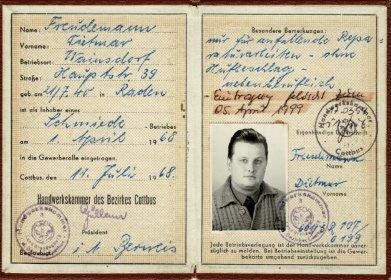 Name: Freudemann
Vorname: Dietmar
Betriebsort: Wainsdorf
Straße: Hauptstr. 39
geb. am 21.7.40 in Raden
ist als Inhaber eines
Schmiede - Betriebes
am 1. April 1968
in die Gewerberolle eingetragen.
Cottbus, den 11. Juli 1968.
Handwerkskammer des Bezirkes Cottbus
Beglaubigt:
Besondere Bemerkungen:
nur für anfallende Repa-
raturarbeiten - ohne
Hufbeschlag -
nebenberuflich
Eintragung gelöscht
05. April 1977
Handwerkskammer
Cottbus
Freudemann
Dietmar
Jede Betriebsverlegung ist der Handwerkskammer unverzüg-
lich zu melden. Bei Betriebseinstellung ist die Gewer-
bekarte umgehend zurückzugeben.